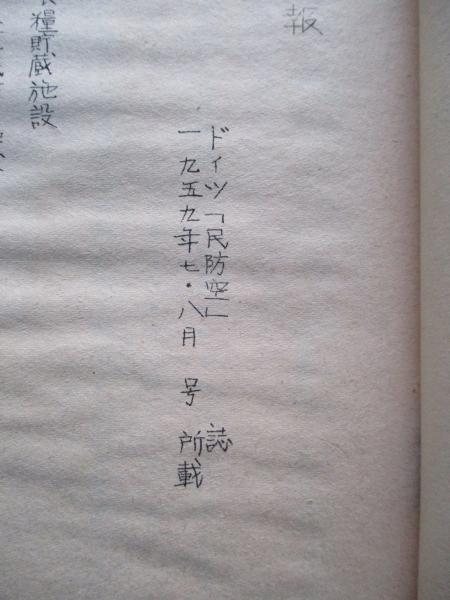 報
ドイツ「民防空」誌
一九五九年七・八月号所載
糧貯蔵施設